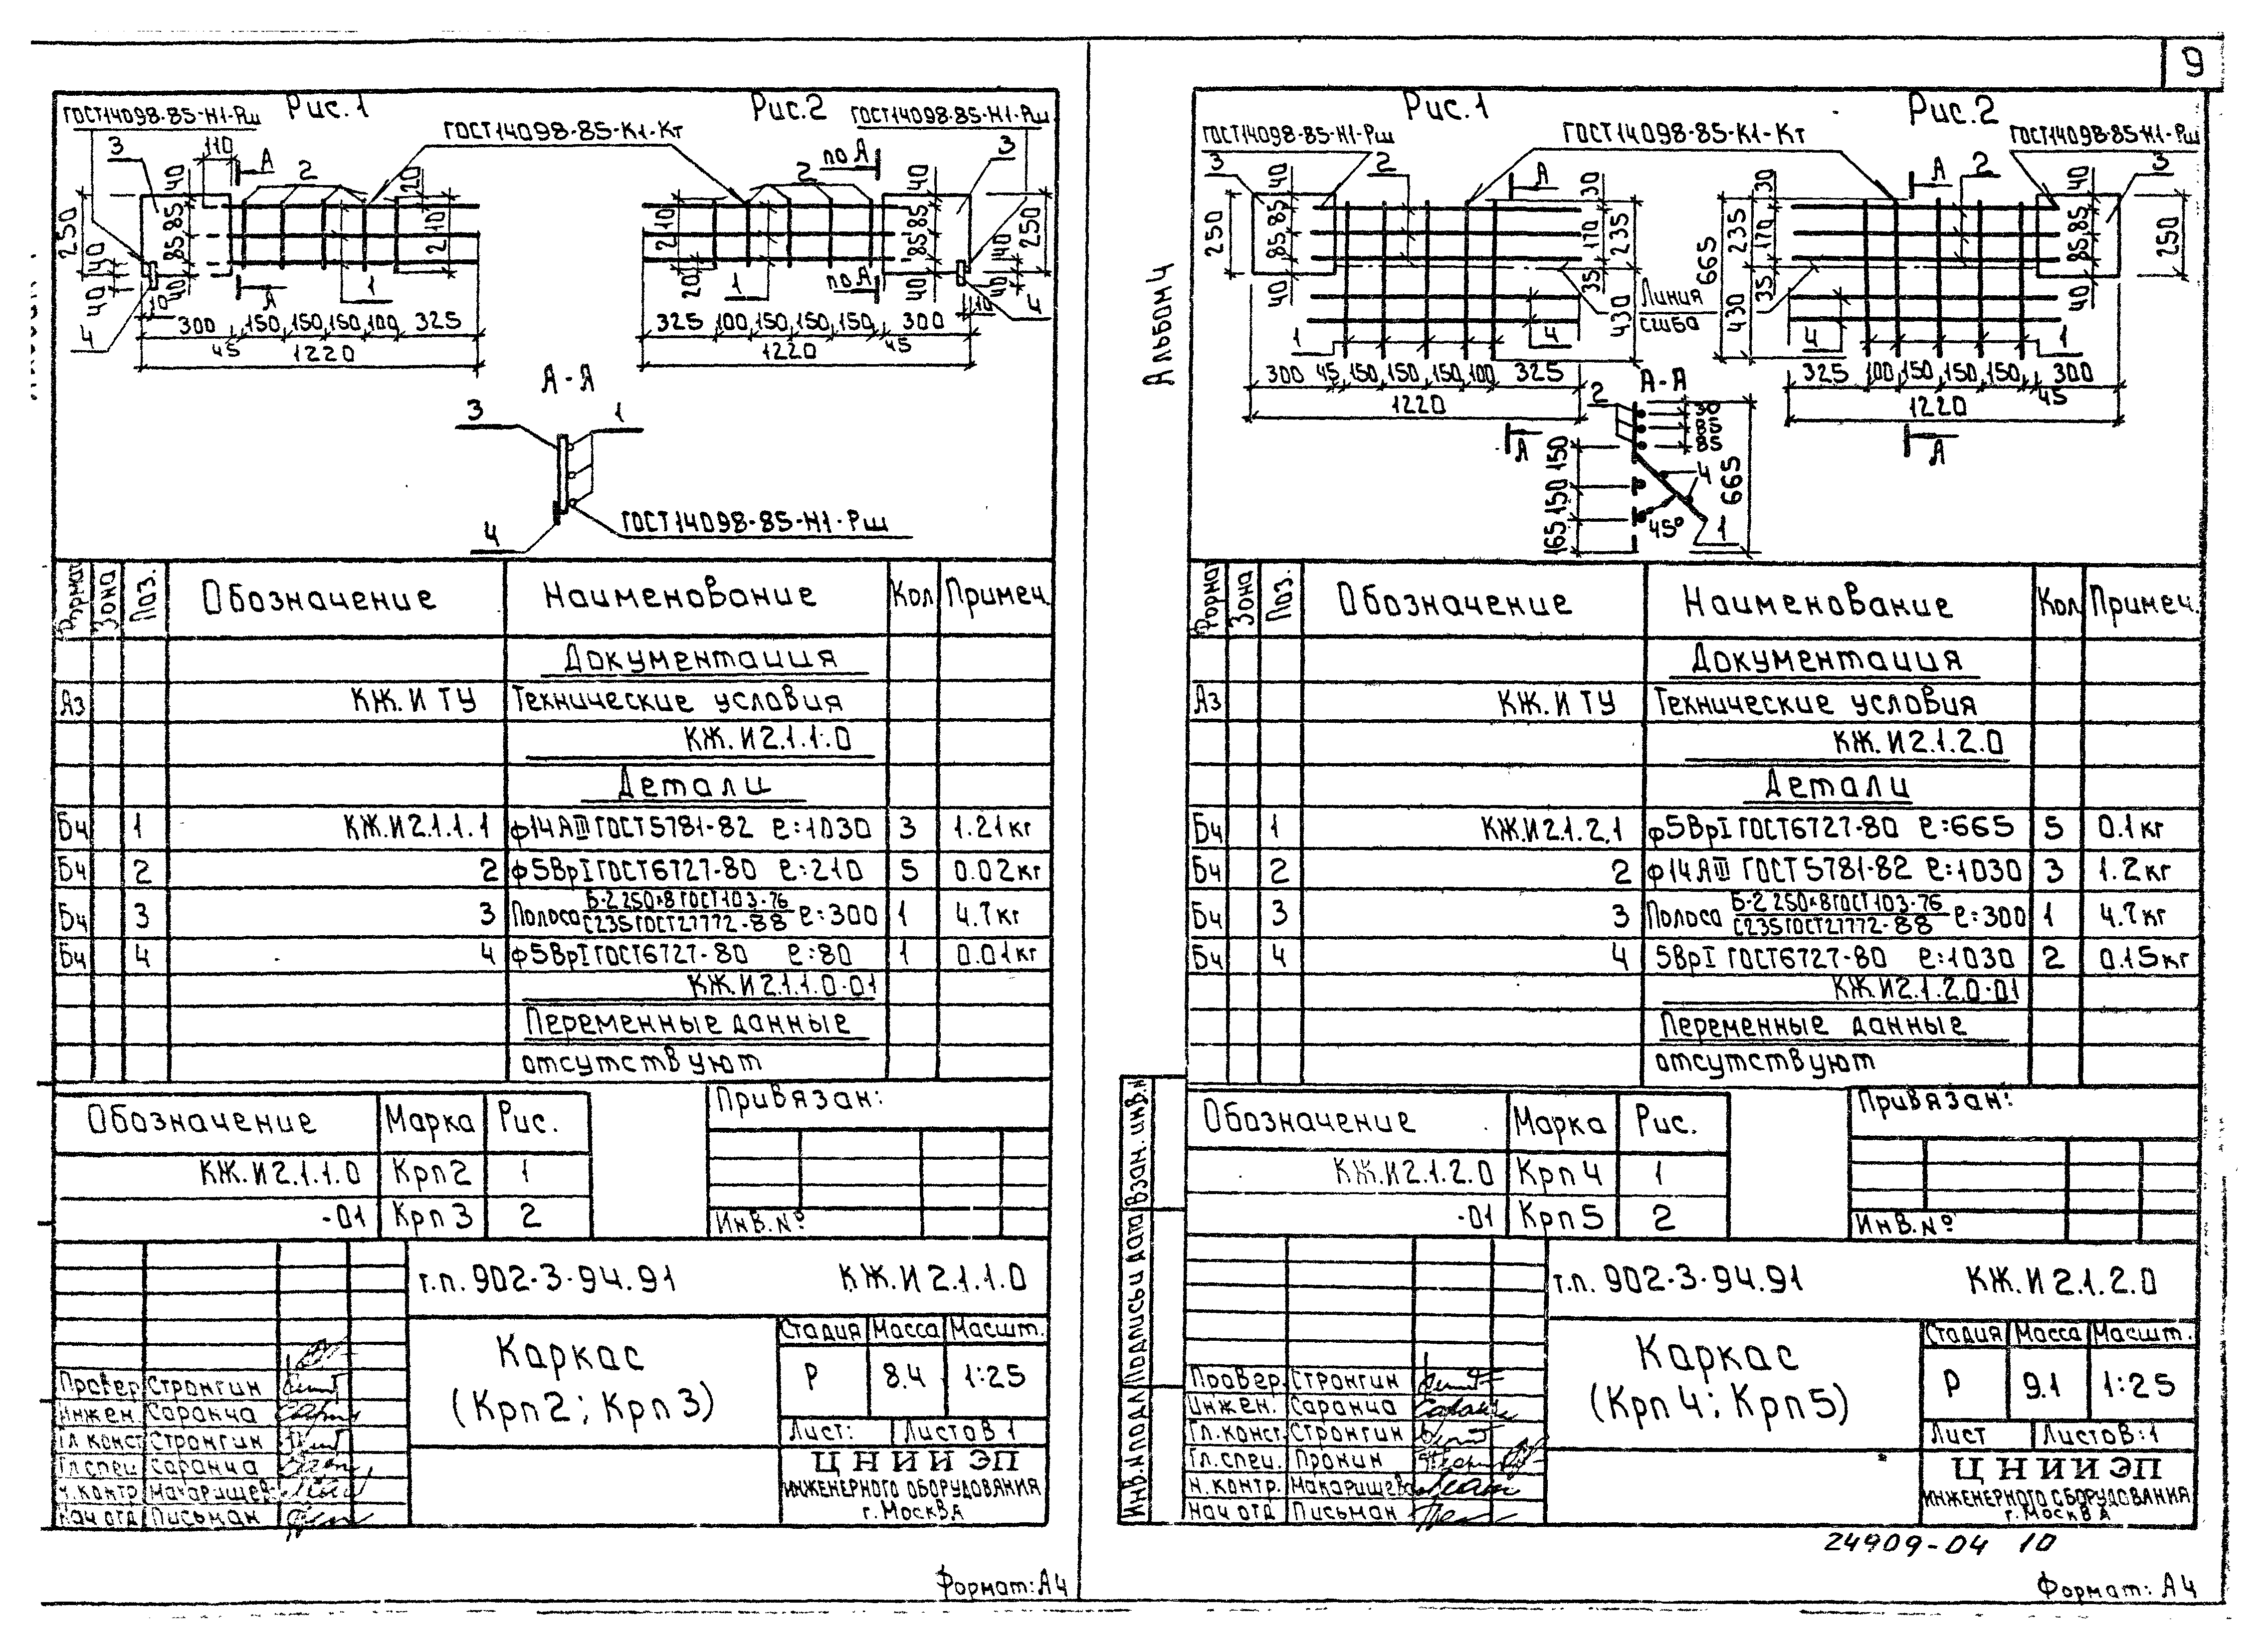 9
Рис.1
Рис.2
ГОСТ14098-85-Н1-Рш
ГОСТ14098-85-К1-Кт
ГОСТ14098-85-Н1-Рш
3
110
А
2
20
по А
2
3
40
85
85
40
250
40
40
10
210
1
А
210
20
1
по А
40
85
85
40
250
40
40
10
4
4
300
45
150
150
150
100
325
1220
325
100
150
150
150
45
300
1220
А-А
3
1
4
ГОСТ14098-85-Н1-Рш
Формат Зона Поз. Обозначение Наименование Кол Примеч.
Документация
А3 КЖ.И ТУ Технические условия
КЖ.И2.1.1.0
Детали
Бч 1 КЖ.И2.1.1.1 ф14АIII ГОСТ5781-82 ℓ:1030 3 1.21кг
Бч 2 2 ф5ВрI ГОСТ6727-80 ℓ:210 5 0.02кг
Бч 3 3 Полоса Б-2 250×8 ГОСТ103-76 / С235 ГОСТ27772-88 ℓ:300 1 4.7кг
Бч 4 4 ф5ВрI ГОСТ6727-80 ℓ:80 1 0.01кг
КЖ.И2.1.1.0-01
Переменные данные
отсутствуют
Обозначение Марка Рис.
КЖ.И2.1.1.0 Крп2 1
-01 Крп3 2
Привязан:
Инв.№
т.п. 902-3-94.91 КЖ.И2.1.1.0
Каркас
(Крп2; Крп3)
Стадия Масса Масшт.
Р 8.4 1:25
Лист: Листов 1
ЦНИИЭП
ИНЖЕНЕРНОГО ОБОРУДОВАНИЯ
г. Москва
Провер. Стронгин
Инжен. Саранча
Гл.конст Стронгин
Гл.спец. Саранча
Н.контр. Макаришев
Нач отд Письман
Формат: А4
Альбом 4
Рис.1
Рис.2
ГОСТ14098-85-Н1-Рш
ГОСТ14098-85-К1-Кт
ГОСТ14098-85-Н1-Рш
3
2
А
30
30
А
2
3
40
85
85
40
250
170
235
35
430
Линия
сгиба
665
235
170
35
430
40
85
85
40
250
1
4
4
1
300
45
150
150
150
100
325
1220
325
100
150
150
150
45
300
1220
А-А
А
А
2
30
85
85
150
150
165
4
665
45°
1
Формат Зона Поз. Обозначение Наименование Кол Примеч.
Документация
А3 КЖ.И ТУ Технические условия
КЖ.И2.1.2.0
Детали
Бч 1 КЖ.И2.1.2.1 ф5ВрI ГОСТ6727-80 ℓ:665 5 0.1кг
Бч 2 2 ф14АIII ГОСТ5781-82 ℓ:1030 3 1.2кг
Бч 3 3 Полоса Б-2 250×8 ГОСТ103-76 / С235 ГОСТ27772-88 ℓ:300 1 4.7кг
Бч 4 4 5ВрI ГОСТ6727-80 ℓ:1030 2 0.15кг
КЖ.И2.1.2.0-01
Переменные данные
отсутствуют
Обозначение Марка Рис.
КЖ.И2.1.2.0 Крп4 1
-01 Крп5 2
Привязан:
Инв.№
Инв.N подл Подпись и дата Взам. инв.N
т.п. 902-3-94.91 КЖ.И2.1.2.0
Каркас
(Крп4; Крп5)
Стадия Масса Масшт.
Р 9.1 1:25
Лист Листов:1
ЦНИИЭП
ИНЖЕНЕРНОГО ОБОРУДОВАНИЯ
г. Москва
Провер. Стронгин
Инжен. Саранча
Гл.конст. Стронгин
Гл.спец. Пронин
Н.контр. Макаришев
Нач отд Письман
24909-04 10
Формат: А4